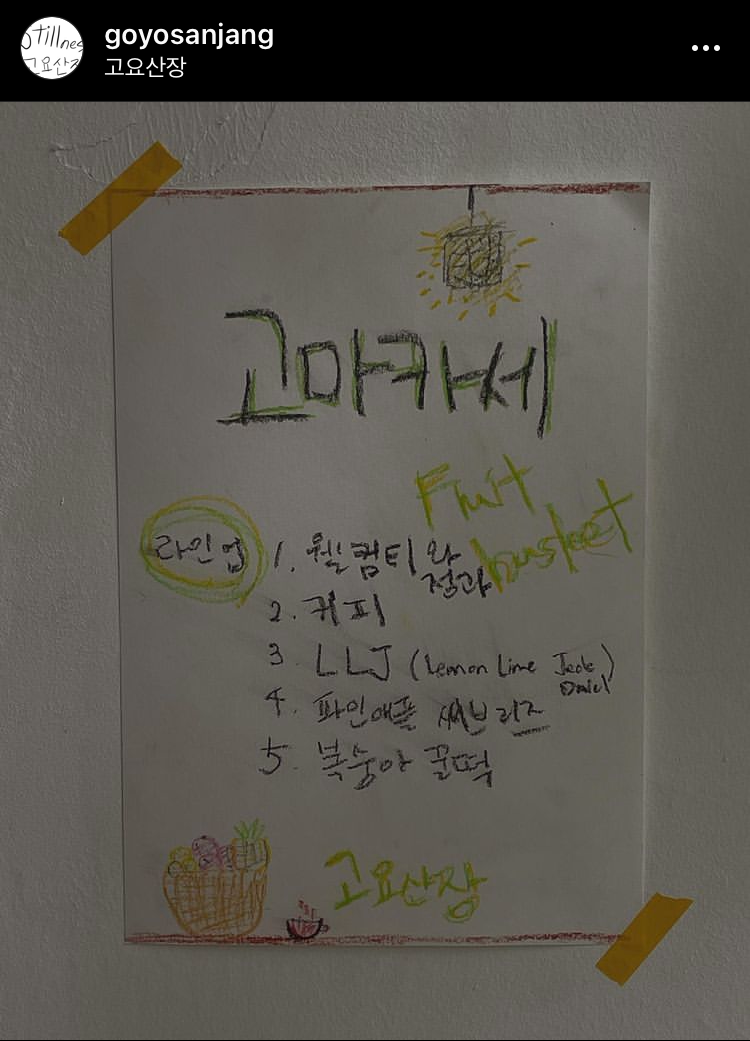 Stillnes
고요산장
goyosanjang
고요산장
고마카세
Fruit
busket
라인업
1. 웰컴티와
정과
2. 커피
3. LLJ (Lemon Lime Jack
Daniel)
4. 파인애플 써브리즈
5. 복숭아 꿀떡
고요산장